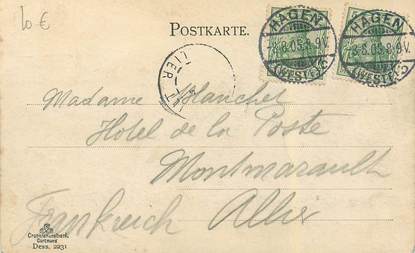 10 €
POSTKARTE.
HAGEN
8.05.8-9V.
(WESTF.)
HAGEN
8.05.8-9V.
(WESTF.)
LIER
Madame Blanchet
Hotel de la Poste
Montmarault
Frankreich Allier
Dortmund
Dess. 2231